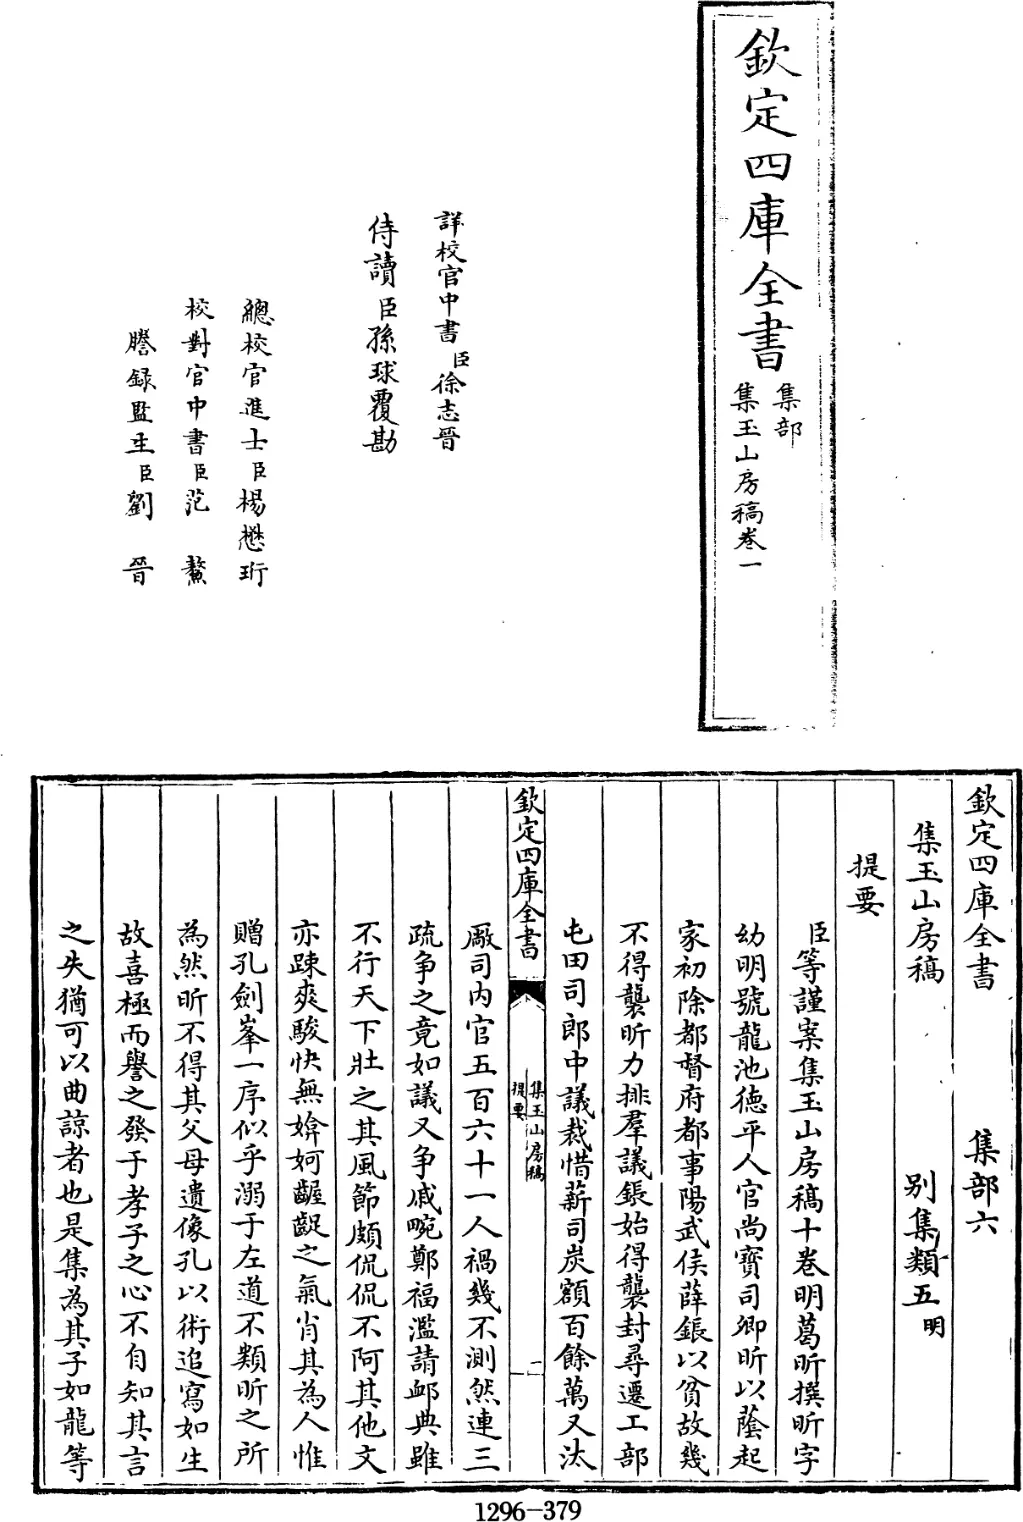 欽定四庫全書
集部
集玉山房稿卷一
詳校官中書臣徐志晉
侍讀臣孫球覆勘
總校官進士臣楊懋珩
校對官中書臣范鏊
謄録監生臣劉晉
欽定四庫全書 集部六
集玉山房稿 别集類五明
提要
臣等謹案集玉山房稿十卷明葛昕撰昕字
幼明號龍池德平人官尚寶司卿昕以蔭起
家初除都督府都事陽武侯薛鋹以貧故幾
不得襲昕力排羣議鋹始得襲封尋遷工部
屯田司郎中議裁惜薪司炭額百餘萬又汰
欽定四庫全書
集玉山房稿
提要
一
厰司内官五百六十一人禍幾不測然連三
疏争之竟如議又争戚畹鄭福濫請䘏典雖
不行天下壯之其風節頗侃侃不阿其他文
亦踈爽駿快無媕婀齷齪之氣肖其為人惟
贈孔劍峯一序似乎溺于左道不類昕之所
為然昕不得其父母遺像孔以術追寫如生
故喜極而譽之發于孝子之心不自知其言
之失猶可以曲諒者也是集為其子如龍等
1296-379